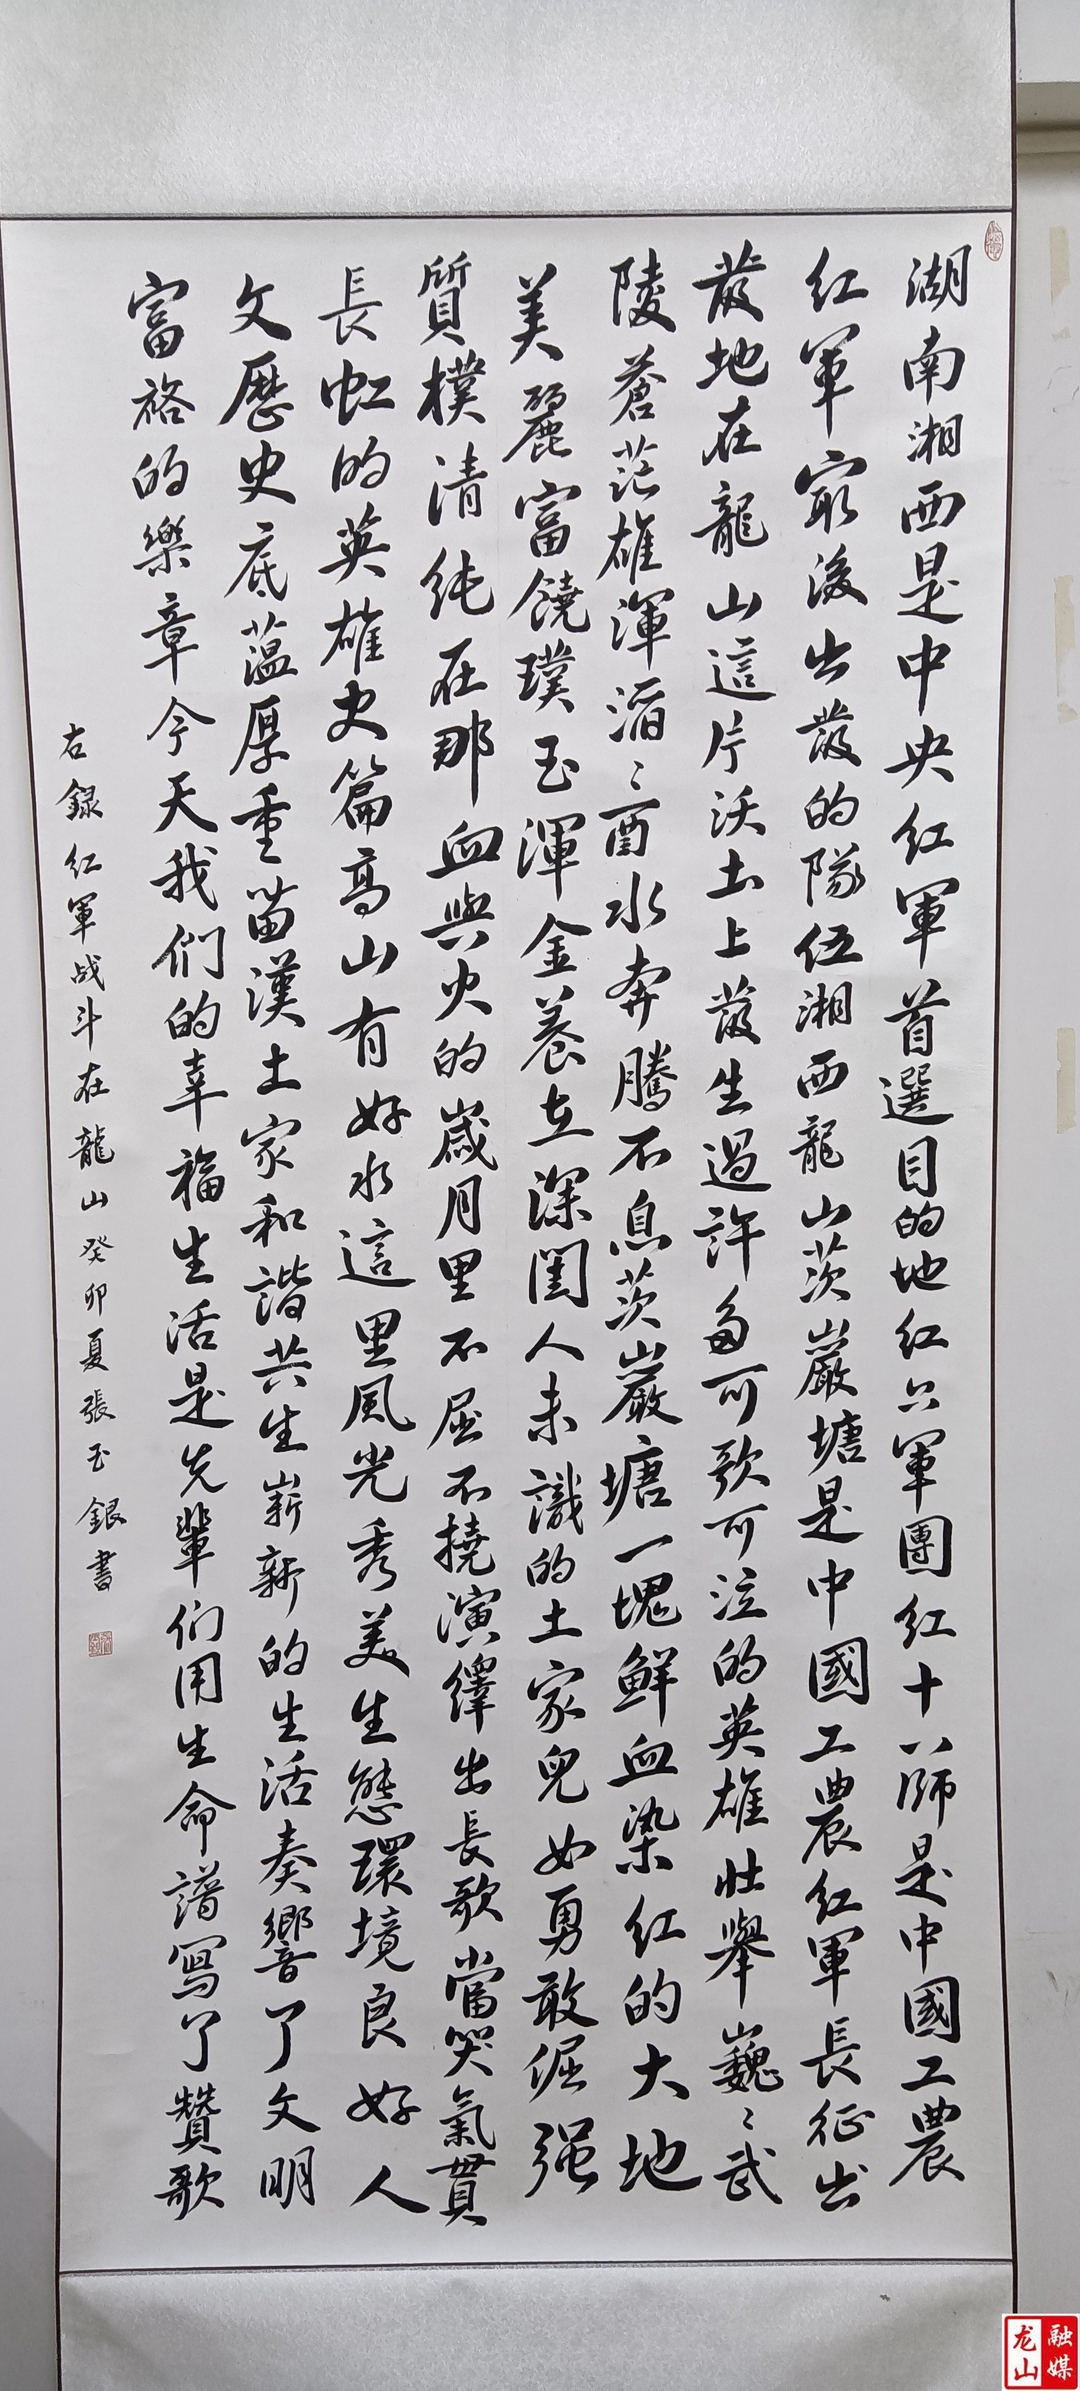 湖南湘西是中央红軍首選目的地红六軍團红十八師是中國工農
红軍最後出發的隊伍湘西龍山茨巖塘是中國工農红軍長征出
發地在龍山這片沃土上發生過許多可歌可泣的英雄壯舉巍〻武
陵蒼茫雄渾滔〻酉水奔騰不息茨巖塘一塊鮮血染红的大地
美麗富饒璞玉渾金養在深閨人未識的土家兒女勇敢倔强
質樸清純在那血與火的歲月里不屈不撓演繹出長歌當哭氣貫
長虹的英雄史篇高山有好水這里風光秀美生態環境良好人
文歷史底蕴厚重苗漢土家和諧共生嶄新的生活奏響了文明
富裕的樂章今天我们的幸福生活是先輩们用生命譜寫了贊歌
右録红軍战斗在龍山癸卯夏張玉銀書
龙山
融媒